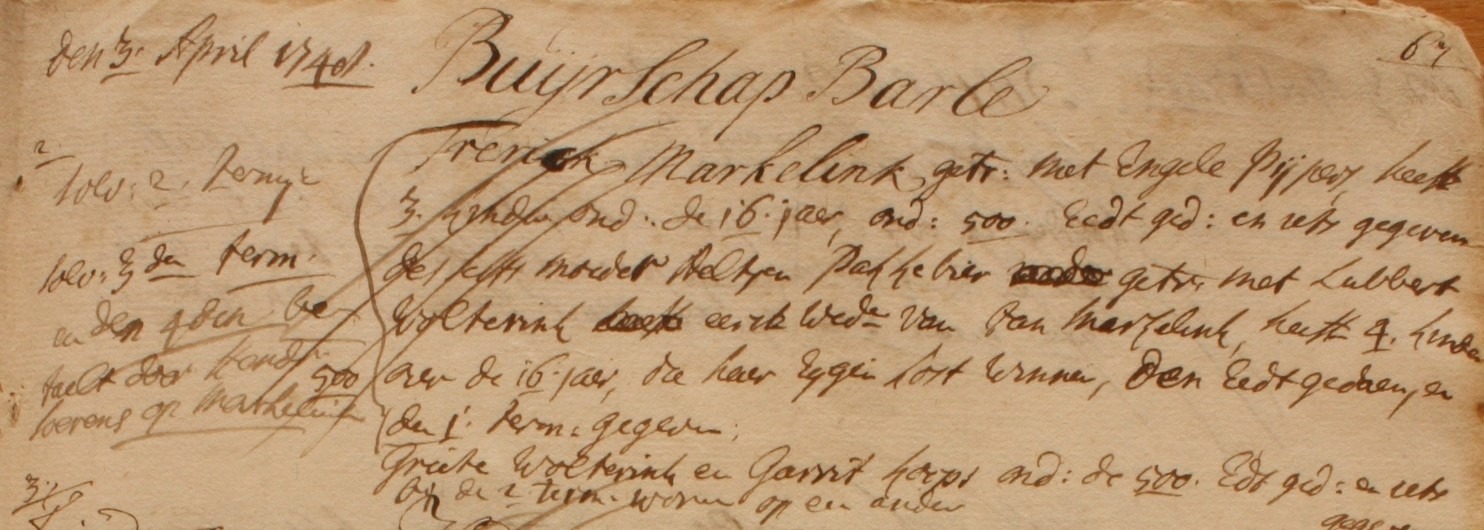 den 3. April 1748.
67
Buijrschap Barle
2
solv: 2. termijn
solv: 3 den term.
en den 4den be
taelt door
500
op Markelink
Frerick Markelink getr: met Engele Pijpers, heeft
3. kinder ond: de 16. jaer, ond: 500. Eedt ged: en iets gegeven
des selfs moeder Aeltjen getr: met Lubbert
Wolterink eerst Wede van Jan Markelink, heeft 4. kinder
over de 16. jaer, die haer Eygen kost winnen, den Eedt gedaen, en
den 1. term: gegeven,
Griete Wolterink en Garrit ond: de 500. Edt ged: en iets
gegeven
bij de 2 term. op een ander
3